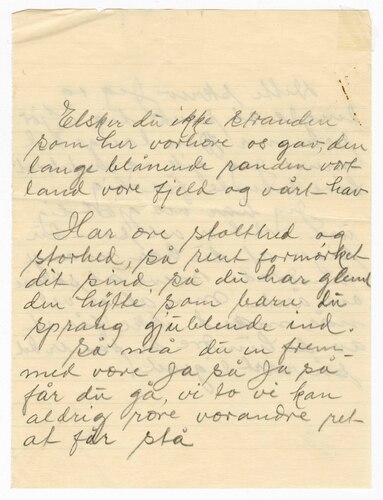 Elsker du ikke stranden
som her vorherre os gav, den
lange blånende randen vort
land vore fjeld og vårt hav
Har ære stolthed og
storhed, så rent formørket
dit sind, så du har glemt
den hytte som barn du
sprang gjublende ind.
Så må du en frem-
med være Ja så Ja så
får du gå, vi to vi kan
aldrig røre vorandre ret
at får stå